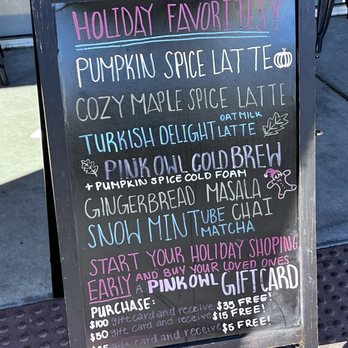 HOLIDAY FAVORITES!
PUMPKIN SPICE LATTE
COZY MAPLE SPICE LATTE
TURKISH DELIGHT OATMILK LATTE
PINK OWL COLD BREW
+ PUMPKIN SPICE COLD FOAM
GINGERBREAD MASALA CHAI
SNOW MINT UBE MATCHA
START YOUR HOLIDAY SHOPING
EARLY AND BUY YOUR LOVED ONES
A PINK OWL GIFT CARD
PURCHASE:
$100 gift card and receive $35 FREE!
$50 gift card and receive $15 FREE!
gift card and receive $5 FREE!